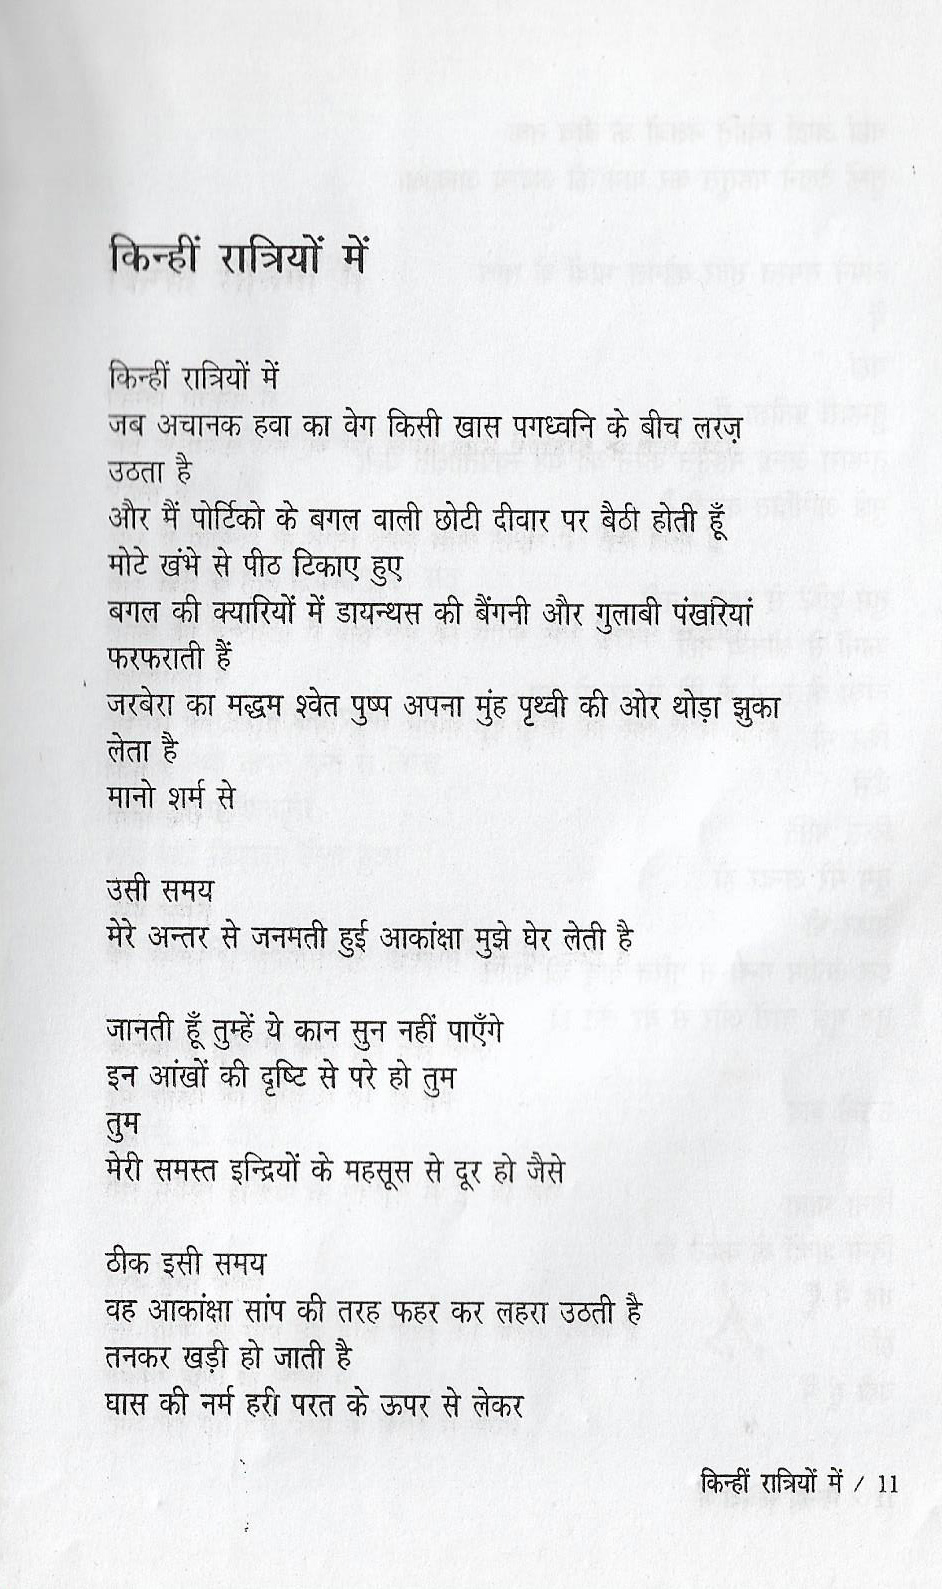 किन्हीं रात्रियों में
किन्हीं रात्रियों में
जब अचानक हवा का वेग किसी खास पगध्वनि के बीच लरज़
उठता है
और मैं पोर्टिको के बगल वाली छोटी दीवार पर बैठी होती हूँ
मोटे खंभे से पीठ टिकाए हुए
बगल की क्यारियों में डायन्थस की बैंगनी और गुलाबी पंखरियां
फरफराती हैं
जरबेरा का मद्धम श्वेत पुष्प अपना मुंह पृथ्वी की ओर थोड़ा झुका
लेता है
मानो शर्म से
उसी समय
मेरे अन्तर से जनमती हुई आकांक्षा मुझे घेर लेती है
जानती हूँ तुम्हें ये कान सुन नहीं पाएँगे
इन आंखों की दृष्टि से परे हो तुम
तुम
मेरी समस्त इन्द्रियों के महसूस से दूर हो जैसे
ठीक इसी समय
वह आकांक्षा सांप की तरह फहर कर लहरा उठती है
तनकर खड़ी हो जाती है
घास की नर्म हरी परत के ऊपर से लेकर
किन्हीं रात्रियों में / 11